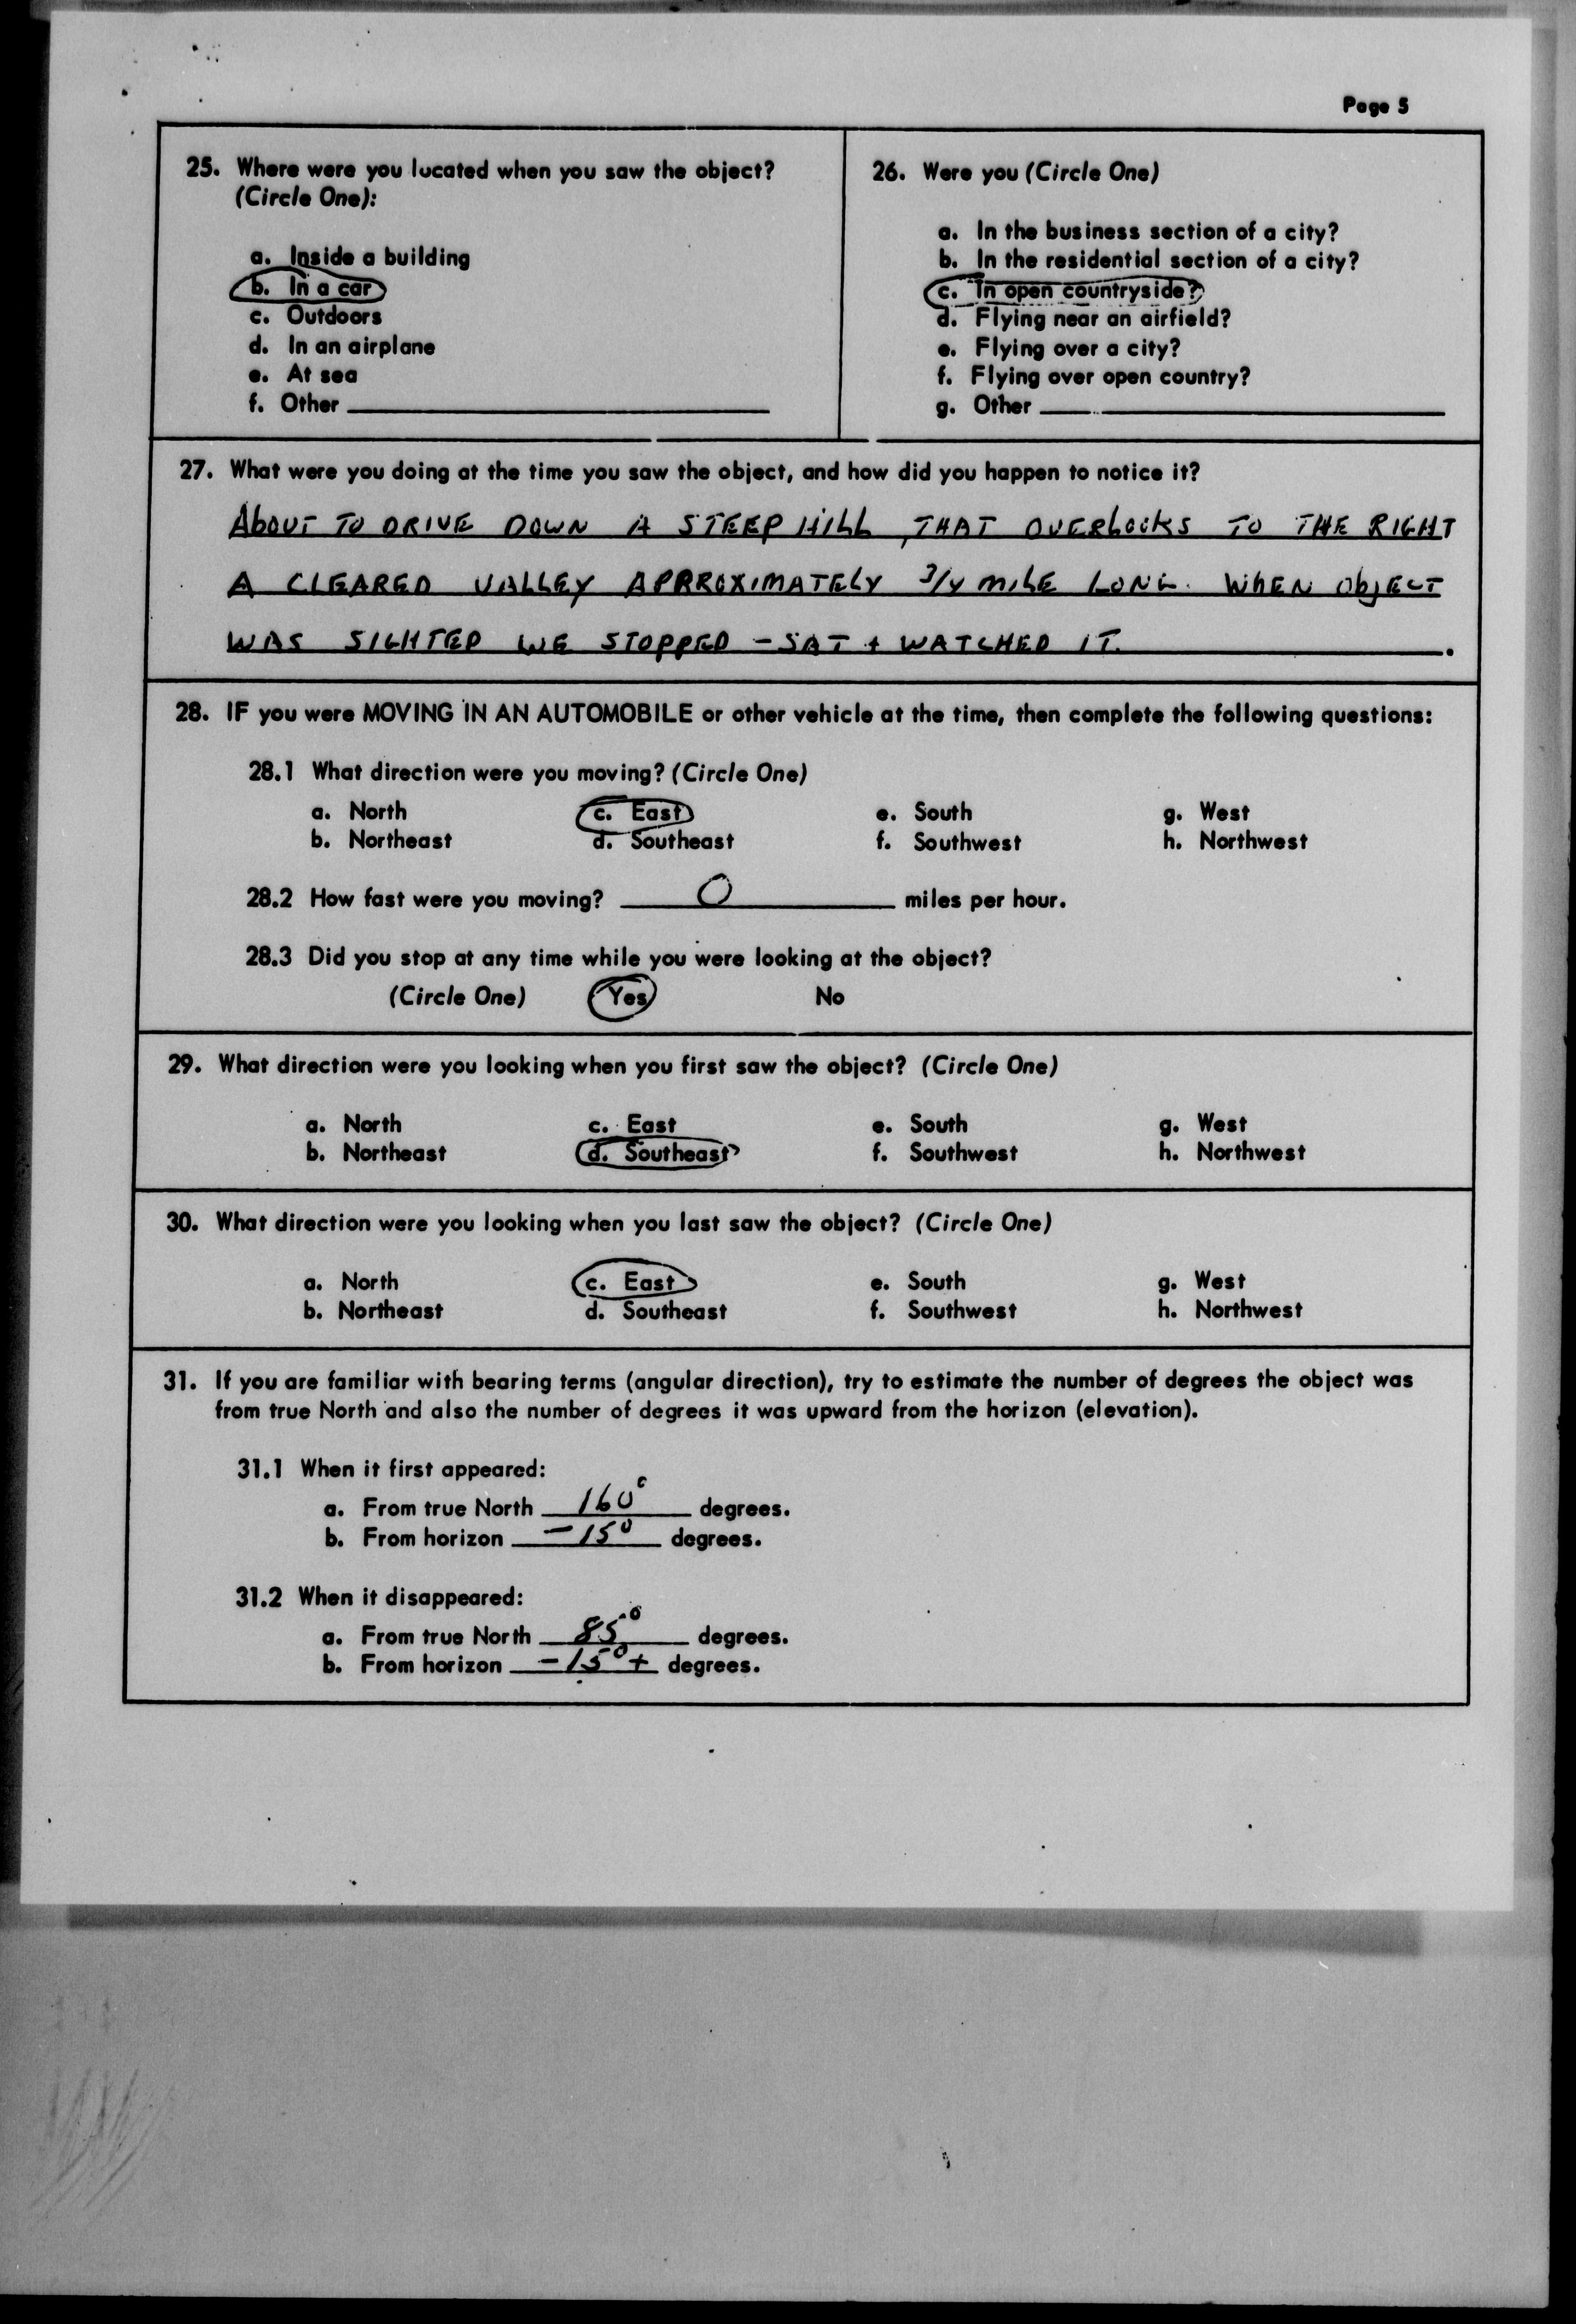 Page 5
25. Where were you located when you saw the object?
(Circle One):
a. Inside a building
b. In a car
c. Outdoors
d. In an airplane
e. At sea
f. Other
26. Were you (Circle One)
a. In the business section of a city?
b. In the residential section of a city?
c. In open countryside?
d. Flying near an airfield?
e. Flying over a city?
f. Flying over open country?
g. Other
27. What were you doing at the time you saw the object, and how did you happen to notice it?
ABOUT TO DRIVE DOWN A STEEP HILL, THAT OVERLOOKS TO THE RIGHT
A CLEARED VALLEY APPROXIMATELY 3/4 MILE LONG. WHEN OBJECT
WAS SIGHTED WE STOPPED - SAT + WATCHED IT.
28. IF you were MOVING IN AN AUTOMOBILE or other vehicle at the time, then complete the following questions:
28.1 What direction were you moving? (Circle One)
a. North c. East e. South g. West
b. Northeast d. Southeast f. Southwest h. Northwest
28.2 How fast were you moving? 0 miles per hour.
28.3 Did you stop at any time while you were looking at the object?
(Circle One) Yes No
29. What direction were you looking when you first saw the object? (Circle One)
a. North c. East e. South g. West
b. Northeast d. Southeast f. Southwest h. Northwest
30. What direction were you looking when you last saw the object? (Circle One)
a. North c. East e. South g. West
b. Northeast d. Southeast f. Southwest h. Northwest
31. If you are familiar with bearing terms (angular direction), try to estimate the number of degrees the object was
from true North and also the number of degrees it was upward from the horizon (elevation).
31.1 When it first appeared:
a. From true North 160° degrees.
b. From horizon -15° degrees.
31.2 When it disappeared:
a. From true North 85° degrees.
b. From horizon -15°+ degrees.